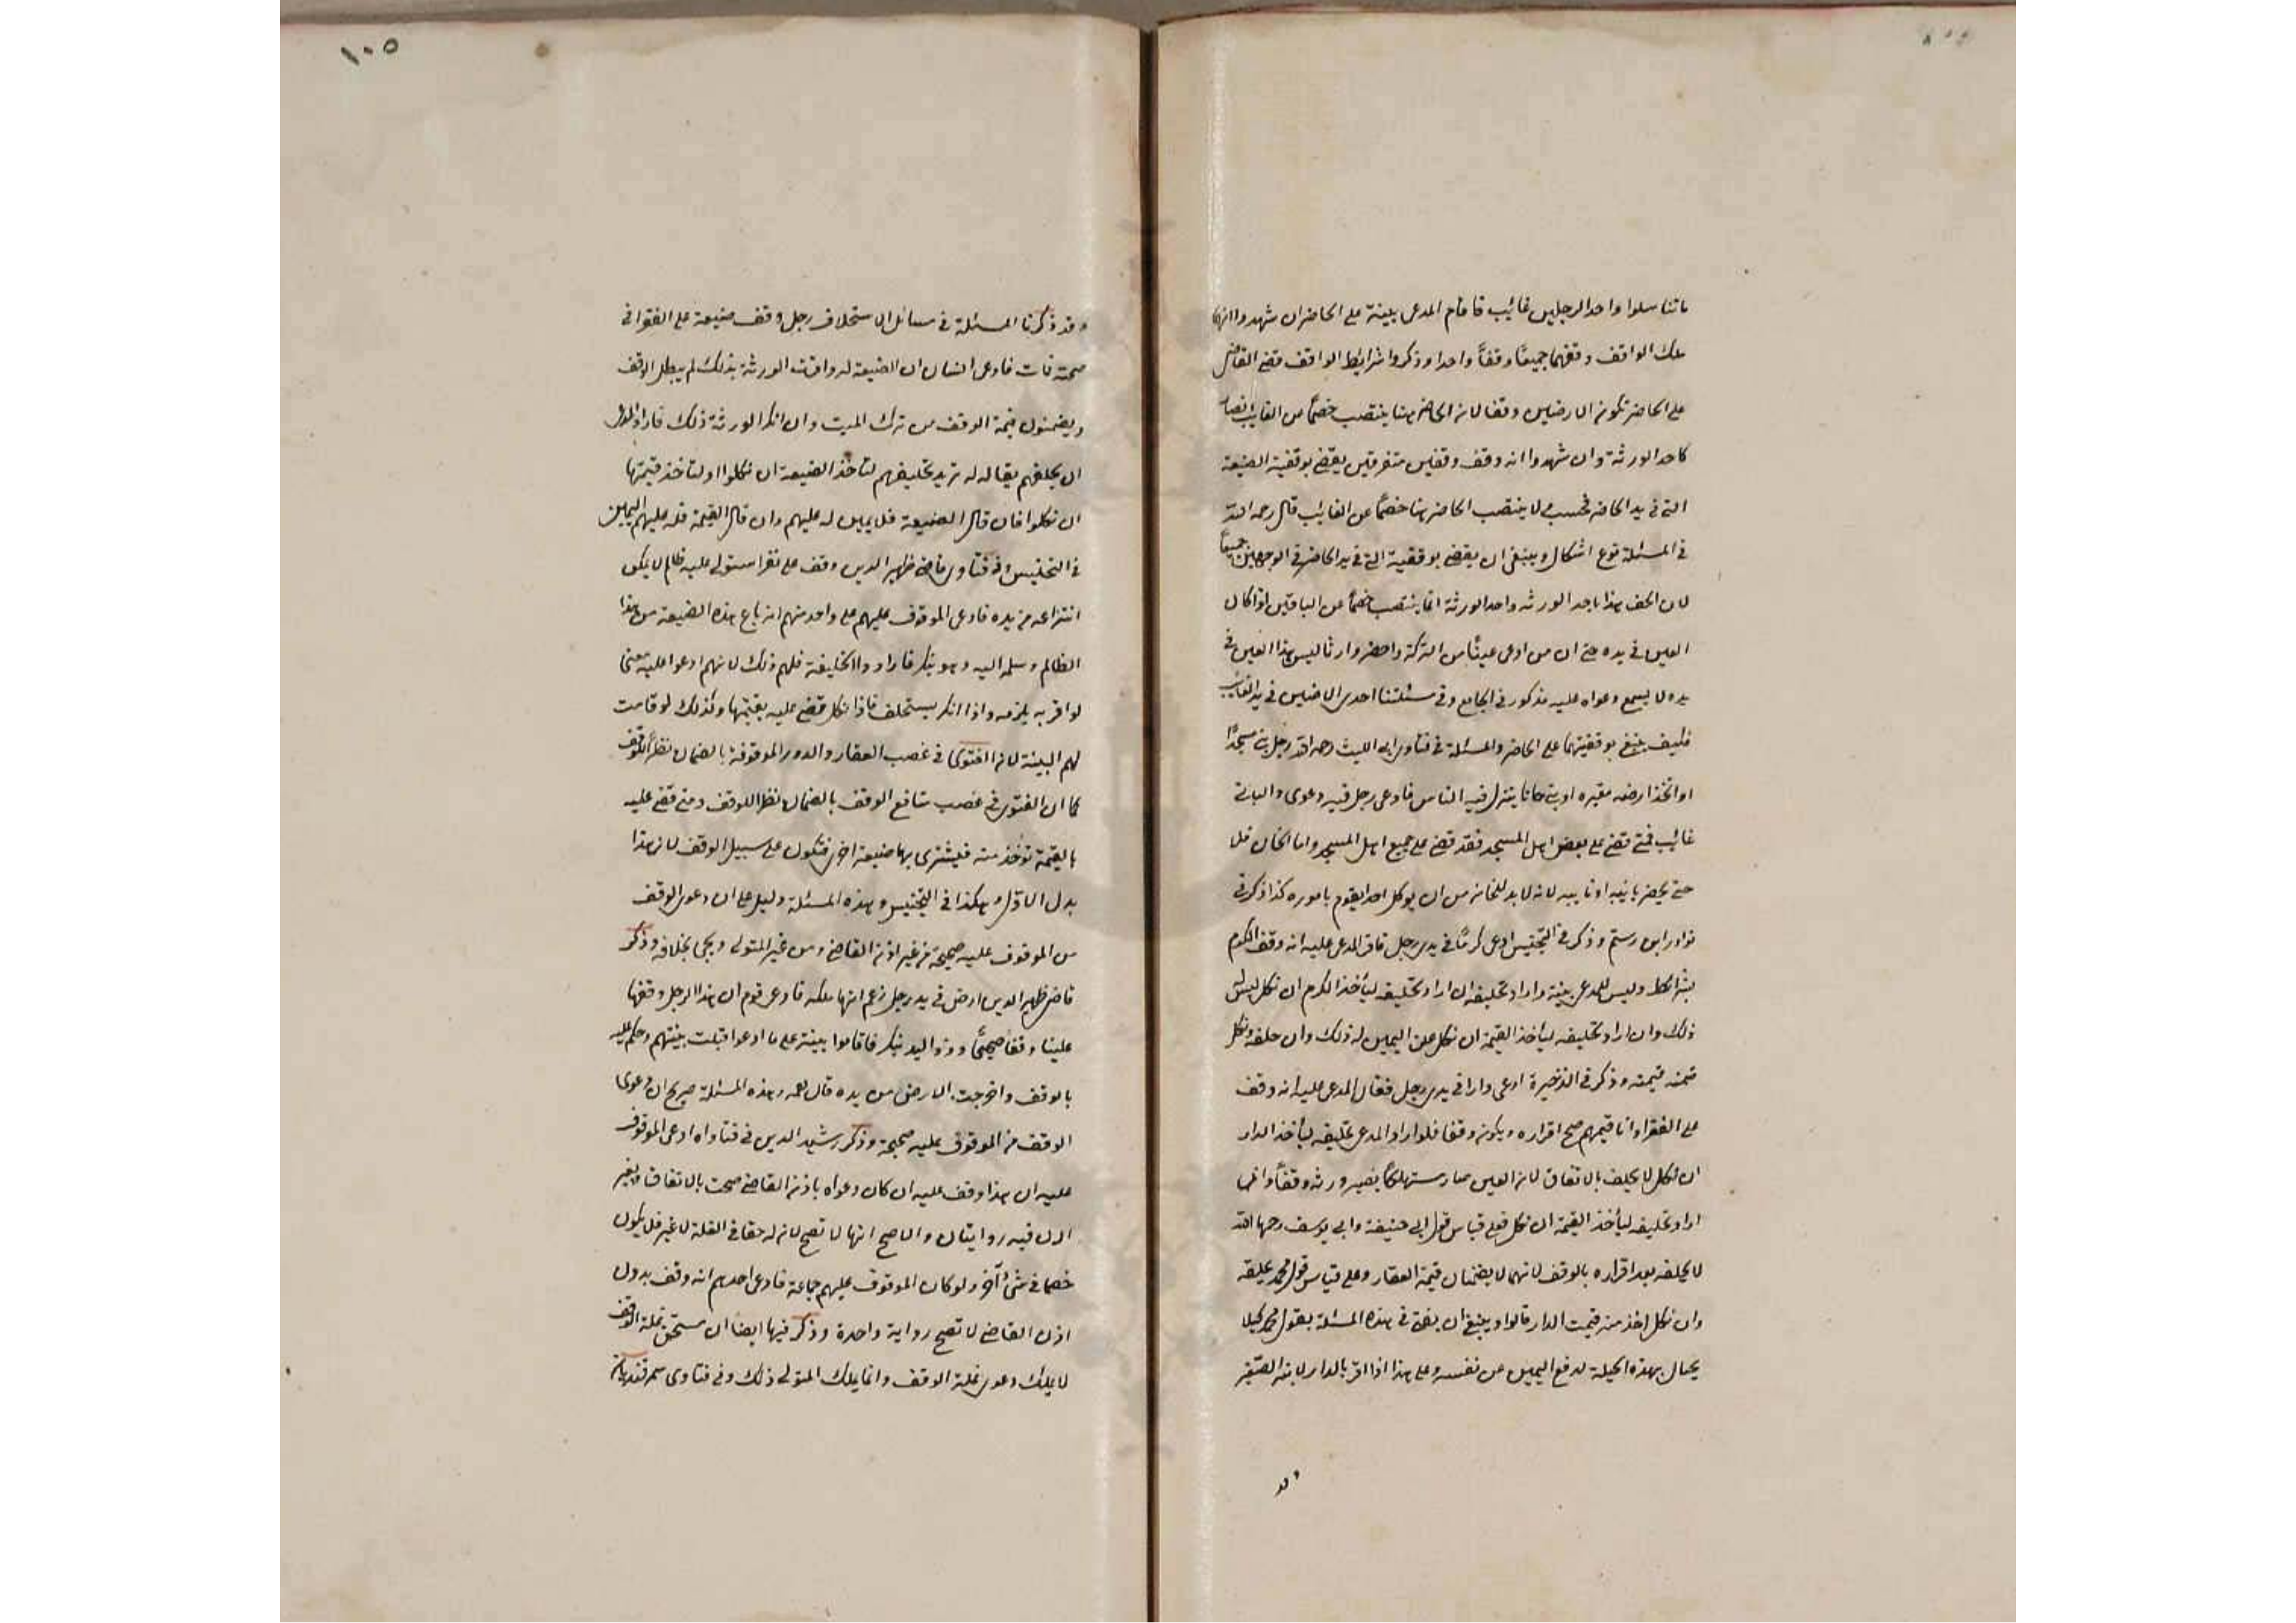 ماتناسلوا واحد الرجلين غائب فاقام المدعى بينة على الحاضر ان شهدوا انها
ملك الواقف وقفهما جميعًا وقفًا واحدا وذكروا شرايط الواقف قضى القاضى
على الحاضر بكون الارضين وقفا لان الحاضر هنا ينتصب خصمًا عن الغايب فصار
كاحد الورثة وان شهدوا انه وقف وقفين متفرقين يقضى بوقفية الضيعة
التى فى يد الحاضر فحسب لا ينتصب الحاضر هنا خصمًا عن الغايب قال رحمه الله
فى المسئلة نوع اشكال وينبغى ان يقضى بوقفية التى فى يد الحاضر فى الوجهين جميعًا
لان الحق هذا باحد الورثه واحد الورثة انما ينتصب خصمًا عن الباقين اذا كان
العين فى يده حتى ان من ادعى عينًا من التركة واحضر وارثا ليس هذا العين فى
يده لا يسمع دعواه عليه مذكور فى الجامع وفى مسئلتنا احدى الارضين فى يد الغايب
فكيف يقضى بوقفيتهما على الحاضر والمسئلة فى فتاوى ابى الليث رحمه الله رجل بنى مسجدًا
او اتخذ ارضه مقبره او بنى خانا ينزل فيه الناس فادعى رجل فيه دعوى والبانى
غائب فمتى قضى على بعض اهل المسجد فقد قضى على جميع اهل المسجد واما الخان فلا
حتى يحضر بانيه او نايبه لانه لا بد للخان من ان يوكل احدا يقوم باموره كذا ذكر فى
نوادر ابن رستم وذكر فى التجنيس ادعى كرمًا فى يدى رجل فاقر المدعى عليه انه وقف الكرم
بشرائطه وليس للمدعى بينة واراد تحليفه ان اراد تحليفه ليأخذ الكرم ان نكل ليس له
ذلك وان اراد تحليفه ليأخذ القيمة ان نكل عن اليمين له ذلك وان حلفه ونكل
ضمنه قيمته وذكر فى الذخيرة ادعى دارا فى يدى رجل فقال المدعى عليه انه وقف
على الفقراء وانا قيمهم صح اقراره ويكون وقفا فلو اراد المدعى تحليفه ليأخذ الدار
ان نكل لا يحلف بالاتفاق لان العين صار مستهلكًا بصيرورته وقفًا وانما
اراد تحليفه ليأخذ القيمة ان نكل فعلى قياس قول ابى حنيفة وابى يوسف رحمهما الله
لا يحلفه بعد اقراره بالوقف لانهما لا يضمنان قيمة العقار وعلى قياس قول محمد يحلفه
وان نكل اخذ منه قيمت الدار قالوا وينبغى ان يفتى فى هذه المسئلة بقول محمد كيلا
يحتال بهذه الحيلة لدفع اليمين عن نفسه وعلى هذا اذا اقر بالدار لابنه الصغير
١٠٥
وقد ذكرنا المسئلة فى مسائل الاستحلاف رجل وقف ضيعة على الفقرا فى
صحته فمات فادعى انسان ان الضيعة له واقرت الورثة بذلك لم يبطل الوقف
ويضمنون قيمة الوقف من تركة الميت وان انكر الورثة ذلك فاراد المدعى
ان يحلفهم يقال له تريد تحليفهم لتأخذ الضيعة ان نكلوا او لتاخذ قيمتها
ان نكلوا فان قال الضيعة فلا يمين له عليهم وان قال القيمة فله عليهم اليمين
فى التجنيس وفى فتاوى قاضى ظهير الدين وقف على نفر استولى عليه ظالم لا يمكن
انتزاعه من يده فادعى الموقوف عليهم على واحد منهم انه باع هذه الضيعة من هذا
الظالم وسلمه اليه وهو ينكر فارادوا تحليفه فلهم ذلك لانهم ادعوا عليه معنى
لو اقر به يلزمه واذا انكر يستحلف فاذا نكل قضى عليه بقيمتها وكذلك لو قامت
لهم البينة لان الفتوى فى غصب العقار والدور الموقوفة بالضمان نظرًا للوقف
كما ان الفتوى فى غصب منافع الوقف بالضمان نظرا للوقف ومتى قضى عليه
بالقيمة تؤخذ منه فيشترى بها ضيعة اخرى فتكون على سبيل الوقف لان هذا
بدل الاول وهكذا فى التجنيس وهذه المسئلة دليل على ان دعوى الوقف
من الموقوف عليه صحيحة من غير اذن القاضى ومن غير المتولى ويجى بخلافه وذكر
قاضى ظهير الدين ارض فى يد رجل زعم انها ملكه فادعى قوم ان هذا الرجل وقفها
علينا وقفًا صحيحًا وذو اليد ينكر فاقاموا بينة على ما ادعوا قبلت بينتهم وحكم عليه
بالوقف واخرجت الارض من يده قال وهذه المسئلة صريح ان دعوى
الوقف من الموقوف عليه صحيحة وذكر رشيد الدين فى فتاواه ادعى الموقوف
عليه ان هذا وقف عليه ان كان دعواه باذن القاضى صحت بالاتفاق وبغير
الاذن فيه روايتان والاصح انها لا تصح لان له حقا فى الغلة لا غير فلا يكون
خصما فى شئ آخر ولو كان الموقوف عليهم جماعة فادعى احدهم انه وقف بدون
اذن القاضى لا تصح رواية واحدة وذكر فيها ايضا ان مستحق غلة الوقف
لا يملك دعوى غلة الوقف وانما يملك المتولى ذلك وفى فتاوى سمرقند